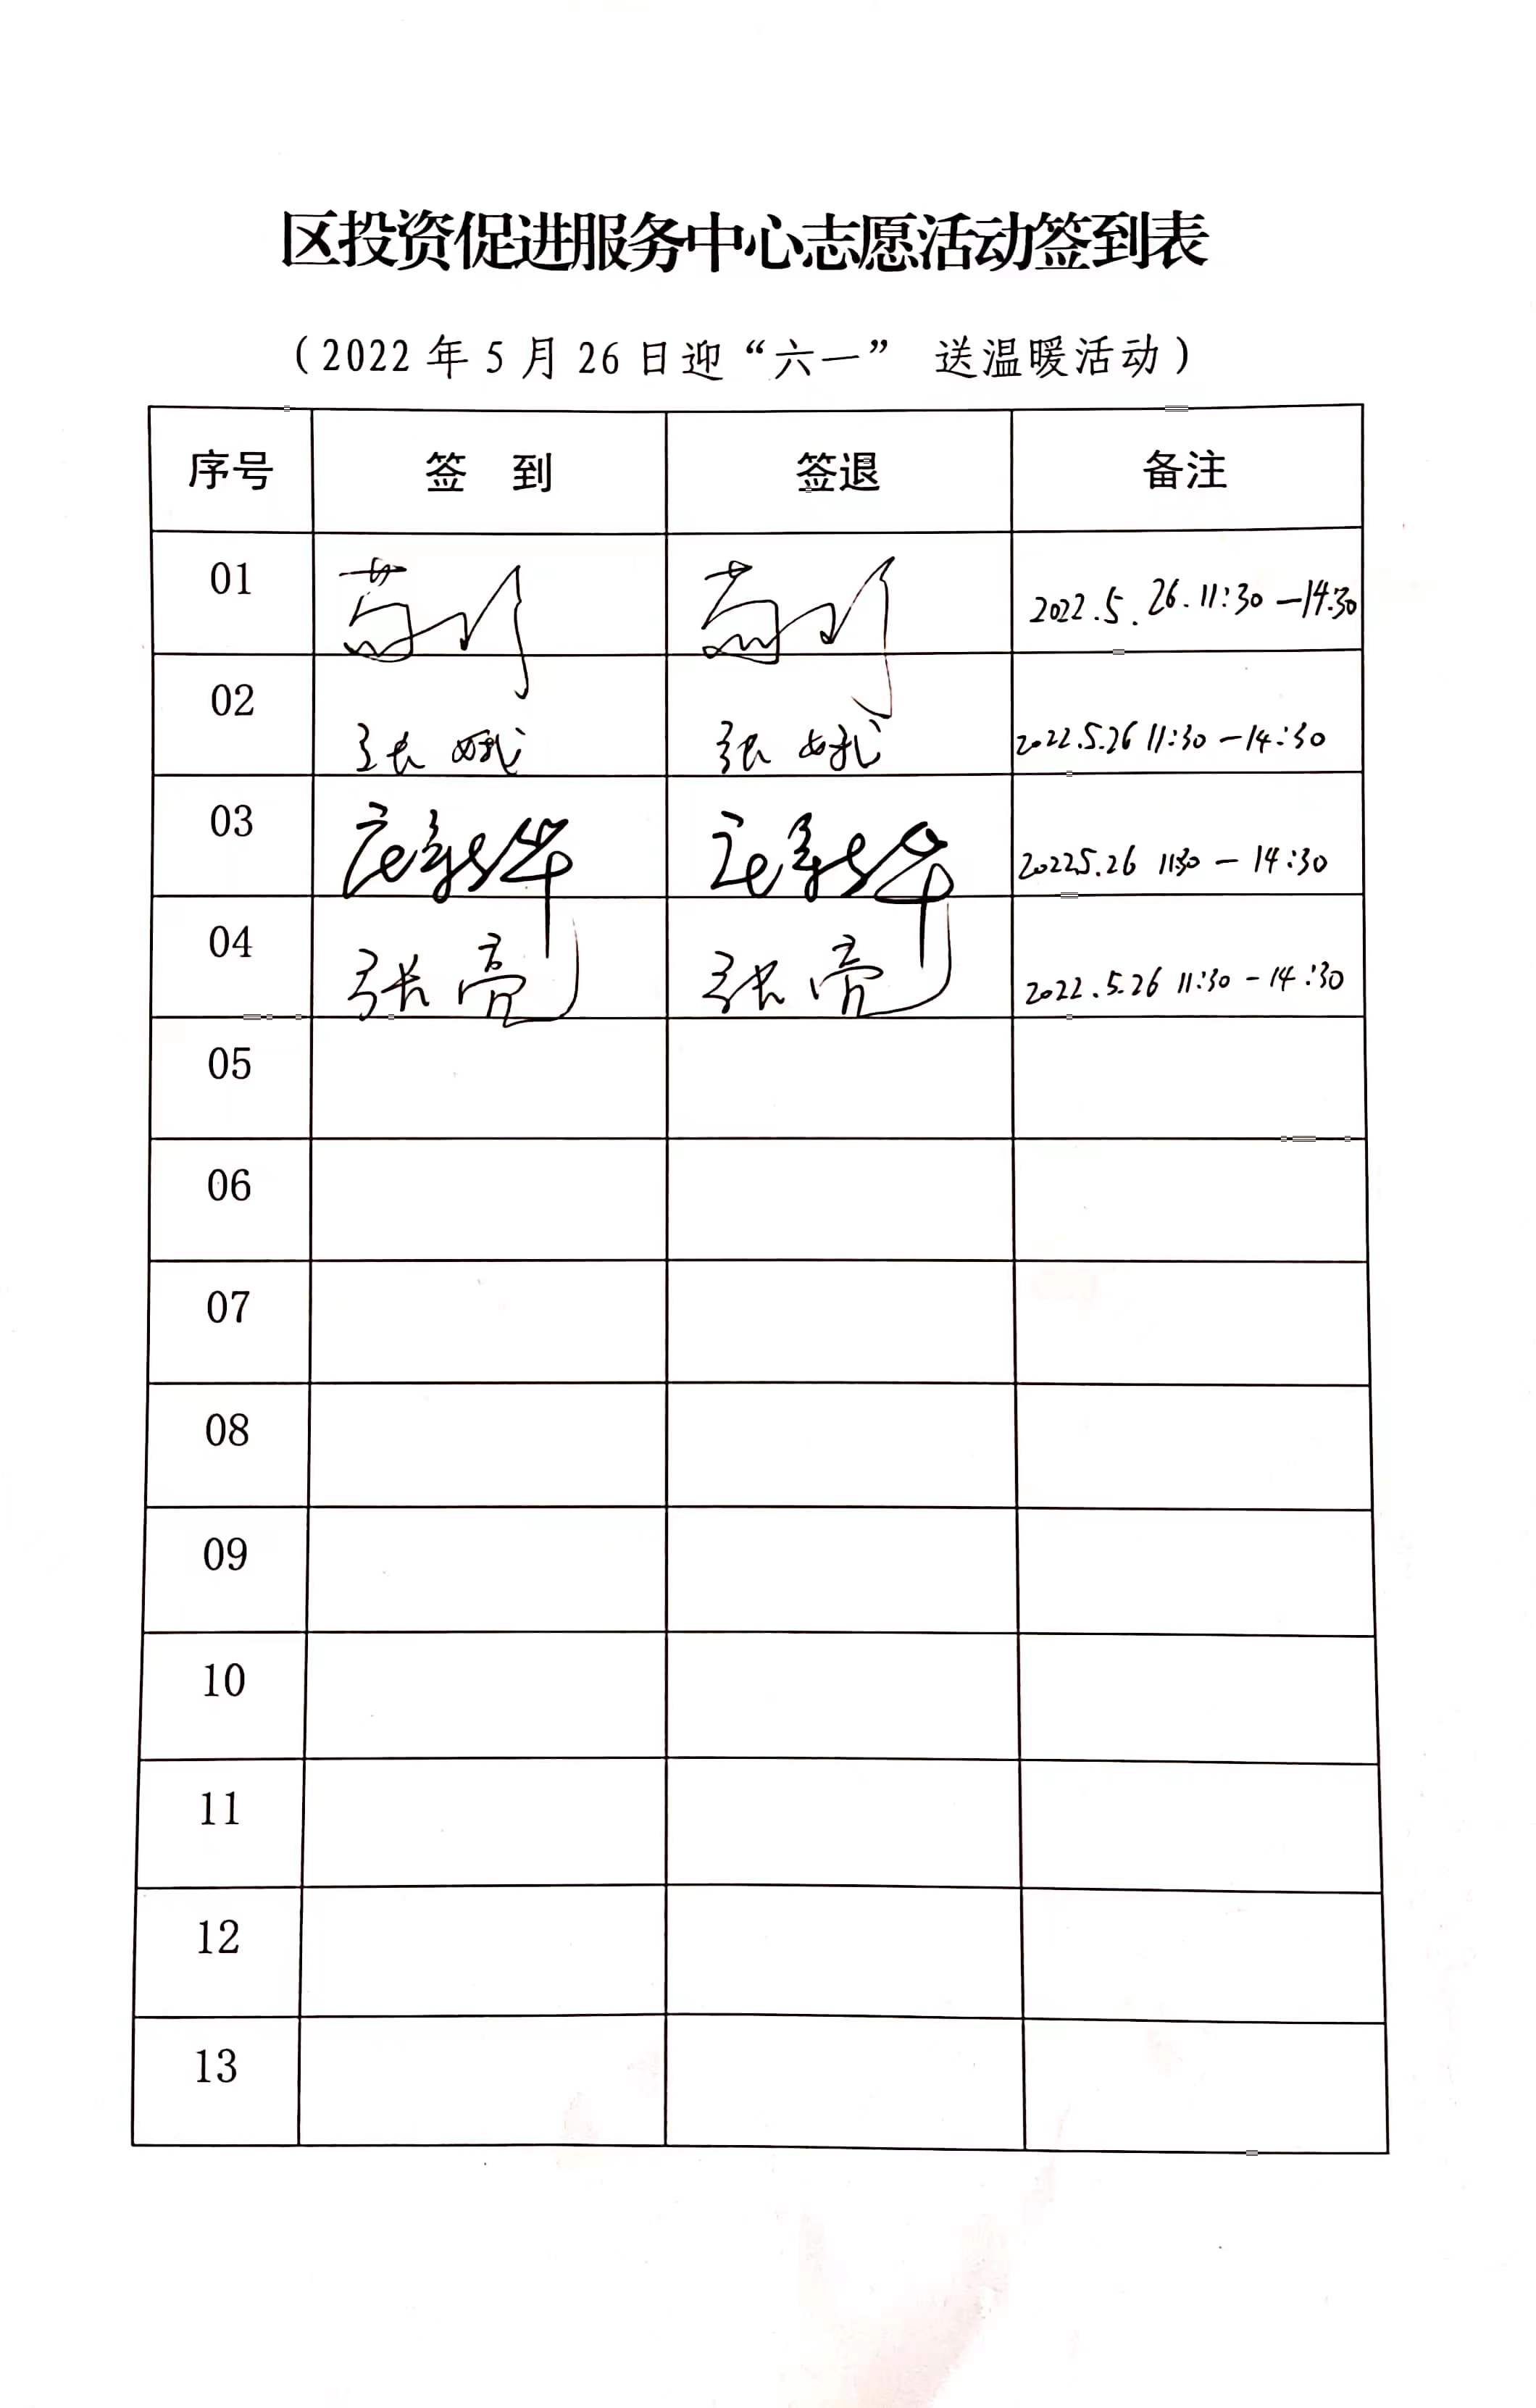 区投资促进服务中心志愿活动签到表
（2022年5月26日迎“六一” 送温暖活动）
序号 签 到 签退 备注
01 2022.5.26.11:30-14:30
02 张娥 张娥 2022.5.26 11:30-14:30
03 2022.5.26 1130-14:30
04 张亮 张亮 2022.5.26 11:30-14:30
05
06
07
08
09
10
11
12
13